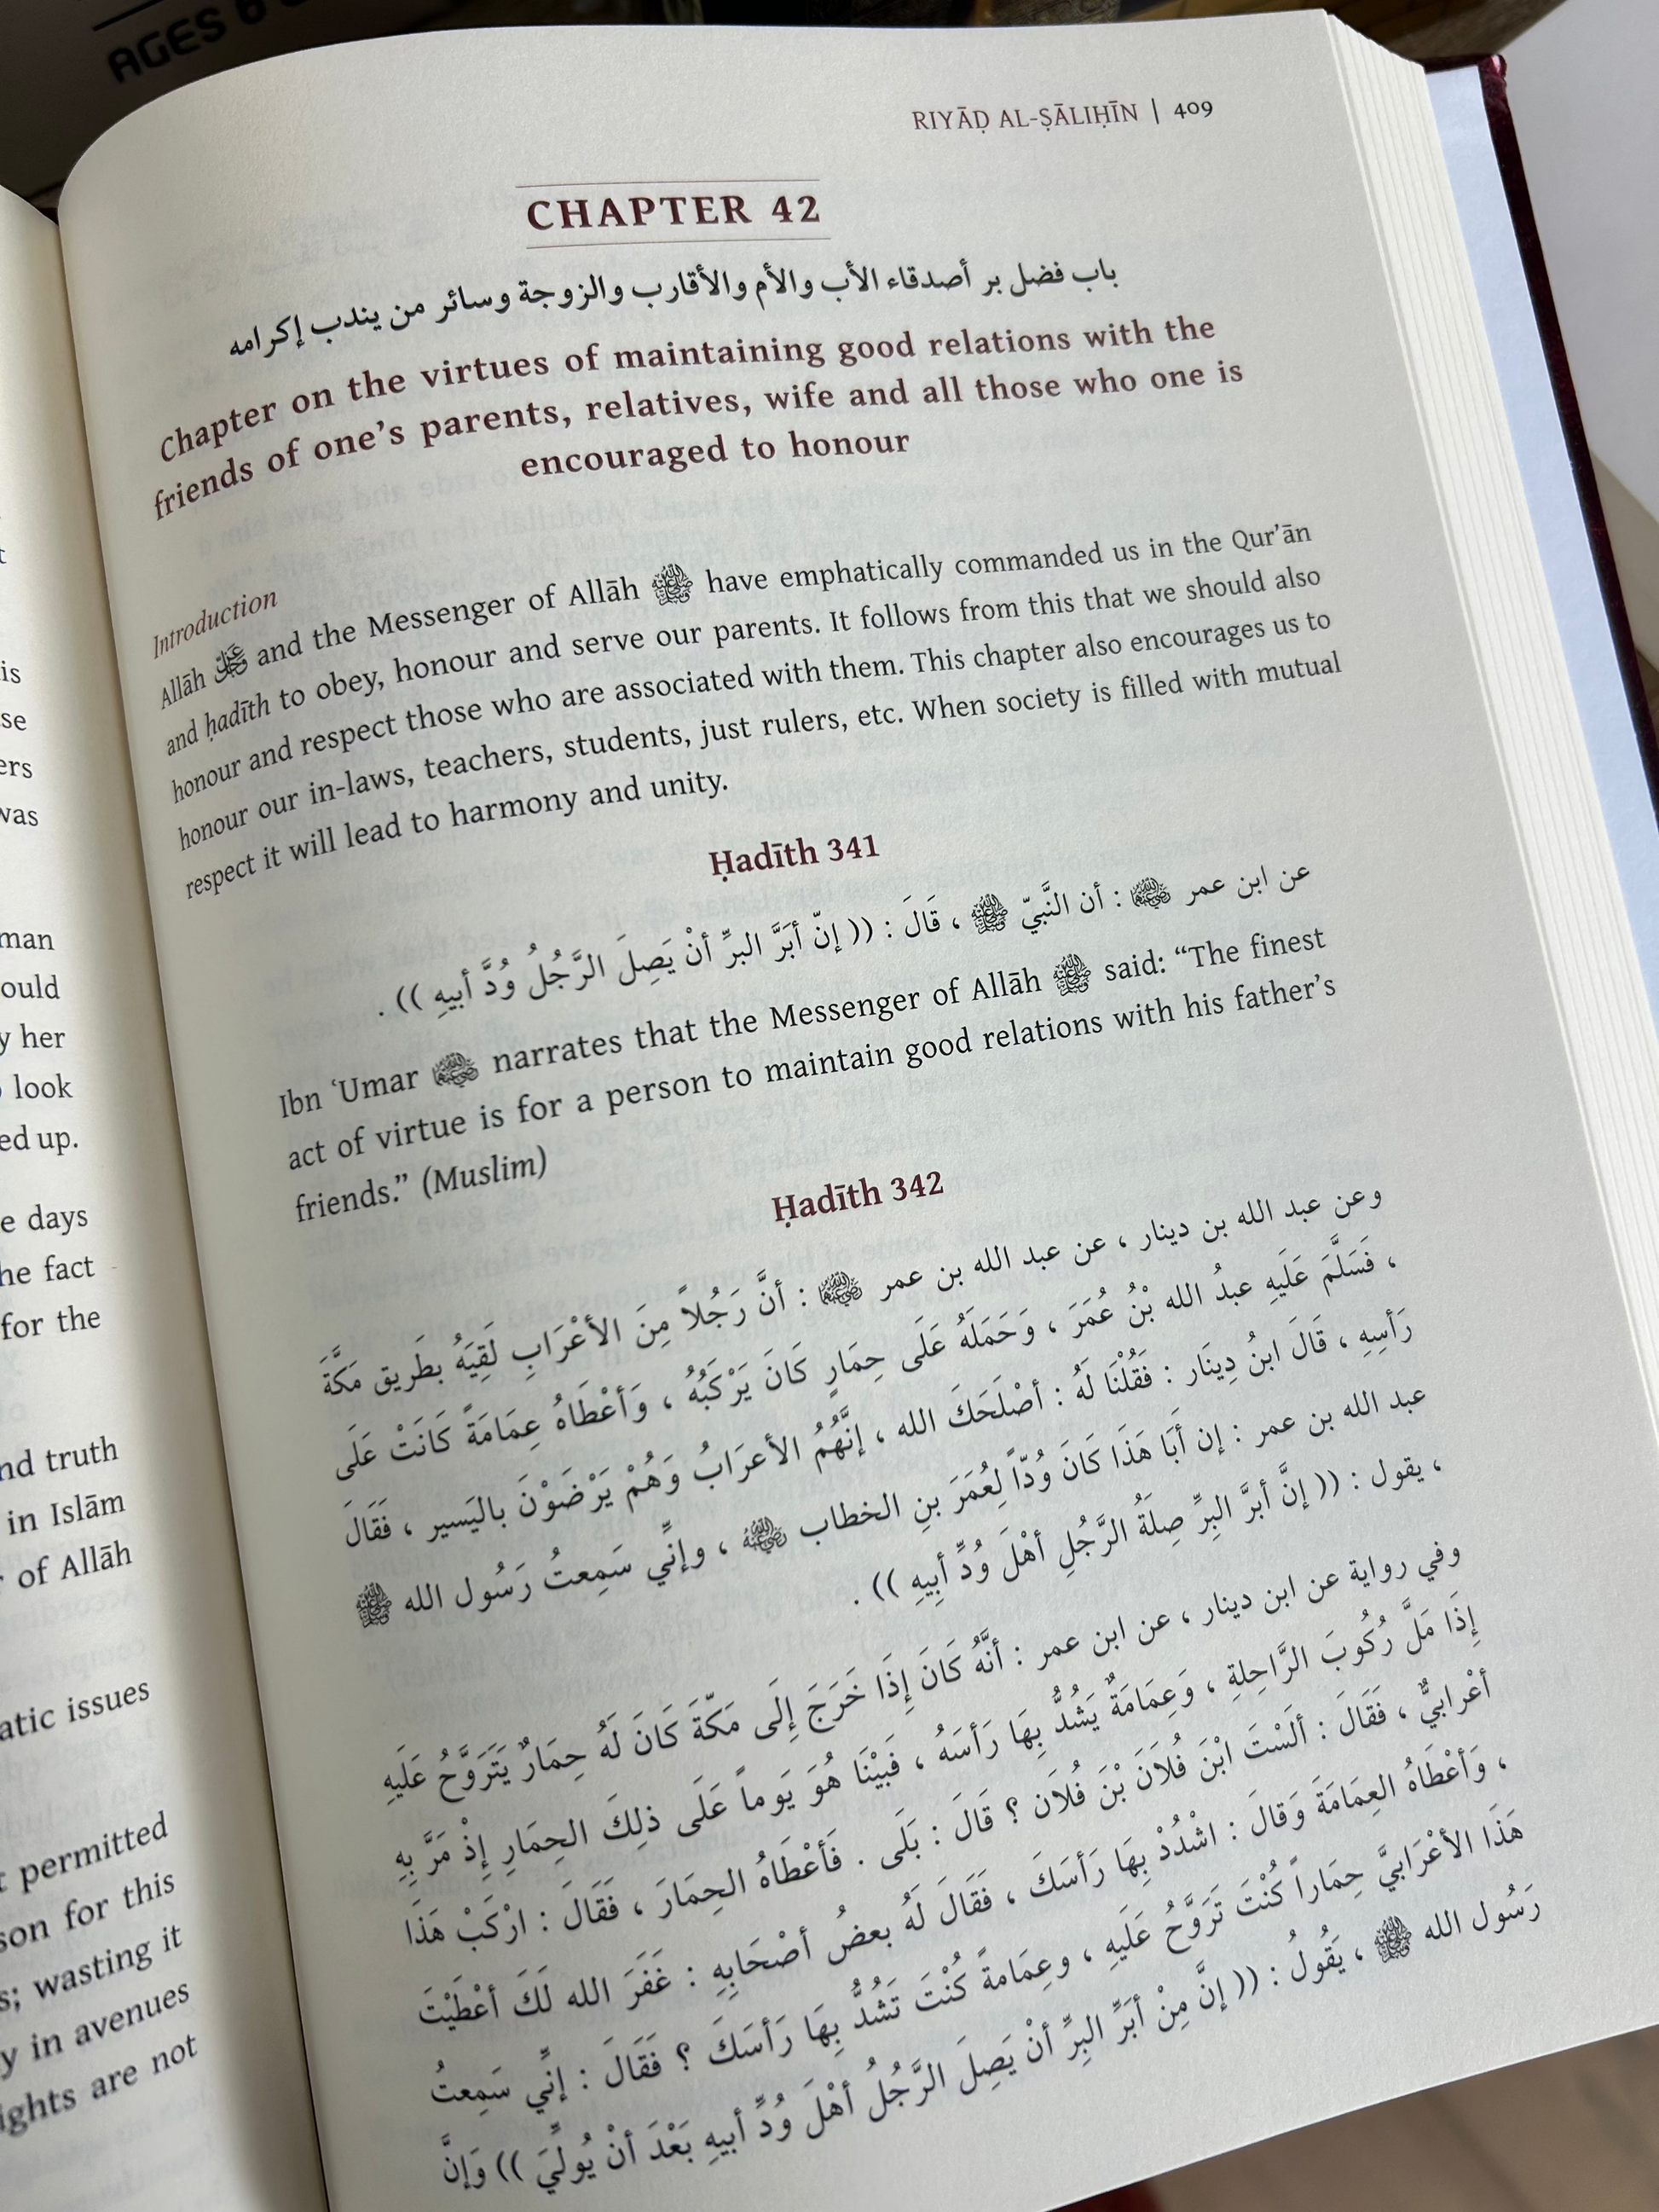 AGES 6
is
se
ers
was
man
ould
y her
look
ed up.
e days
he fact
for the
nd truth
in Islām
of Allāh
atic issues
permitted
son for this
s; wasting it
y in avenues
ights are not
RIYĀḌ AL-ṢĀLIḤĪN | 409
CHAPTER 42
باب فضل بر أصدقاء الأب والأم والأقارب والزوجة وسائر من يندب إكرامه
Chapter on the virtues of maintaining good relations with the
friends of one’s parents, relatives, wife and all those who one is
encouraged to honour
Introduction
Allāh ﷻ and the Messenger of Allāh ﷺ have emphatically commanded us in the Qur’ān
and ḥadīth to obey, honour and serve our parents. It follows from this that we should also
honour and respect those who are associated with them. This chapter also encourages us to
honour our in-laws, teachers, students, just rulers, etc. When society is filled with mutual
respect it will lead to harmony and unity.
Ḥadīth 341
عن ابن عمر : أن النَّبيّ ﷺ ، قَالَ : (( إنّ أبَرَّ البرِّ أنْ يَصِلَ الرَّجُلُ وُدَّ أبيهِ )) .
Ibn ‘Umar narrates that the Messenger of Allāh ﷺ said: “The finest
act of virtue is for a person to maintain good relations with his father’s
friends.” (Muslim)
Ḥadīth 342
وعن عبد الله بن دينار ، عن عبد الله بن عمر : أنَّ رَجُلاً مِنَ الأعْرَابِ لَقِيَهُ بطَريق مَكَّةَ
، فَسَلَّمَ عَلَيهِ عبدُ الله بْنُ عُمَرَ ، وَحَمَلَهُ عَلَى حِمَارٍ كَانَ يَرْكَبُهُ ، وَأعْطَاهُ عِمَامَةً كَانَتْ عَلَى
رَأسِهِ ، قَالَ ابنُ دِينَار : فَقُلْنَا لَهُ : أصْلَحَكَ الله ، إنَّهُمُ الأعرَابُ وَهُمْ يَرْضَوْنَ باليَسير ، فَقَالَ
عبد الله بن عمر : إن أَبَا هَذَا كَانَ وُدّاً لِعُمَرَ بنِ الخطاب ، وإنِّي سَمِعتُ رَسُول الله ﷺ
، يقول : (( إنَّ أبرَّ البِرِّ صِلَةُ الرَّجُلِ أهْلَ وُدِّ أبِيهِ )) .
وفي رواية عن ابن دينار ، عن ابن عمر : أنَّهُ كَانَ إِذَا خَرَجَ إِلَى مَكّةَ كَانَ لَهُ حِمَارٌ يَتَرَوَّحُ عَلَيهِ
إِذَا مَلَّ رُكُوبَ الرَّاحِلةِ ، وَعِمَامَةٌ يَشُدُّ بِهَا رَأسَهُ ، فَبيْنَا هُوَ يَوماً عَلَى ذلِكَ الحِمَارِ إِذْ مَرَّ بِهِ
أعْرابيٌّ ، فَقَالَ : ألَسْتَ ابْنَ فُلاَنَ بْنَ فُلاَن ؟ قَالَ : بَلَى . فَأعْطَاهُ الحِمَارَ ، فَقَالَ : ارْكَبْ هَذَا
، وَأعْطَاهُ العِمَامَةَ وَقالَ : اشْدُدْ بِهَا رَأسَكَ ، فَقَالَ لَهُ بعضُ أصْحَابِهِ : غَفَرَ الله لَكَ أعْطَيْتَ
هَذَا الأعْرَابيَّ حِمَاراً كُنْتَ تَرَوَّحُ عَلَيهِ ، وعِمَامةً كُنْتَ تَشُدُّ بِهَا رَأسَكَ ؟ فَقَالَ : إنِّي سَمِعتُ
رَسُول الله ﷺ ، يَقُولُ : (( إنَّ مِنْ أبَرِّ البِرِّ أنْ يَصِلَ الرَّجُلُ أهْلَ وُدِّ أبيهِ بَعْدَ أنْ يُولِّيَ )) وَإنَّ